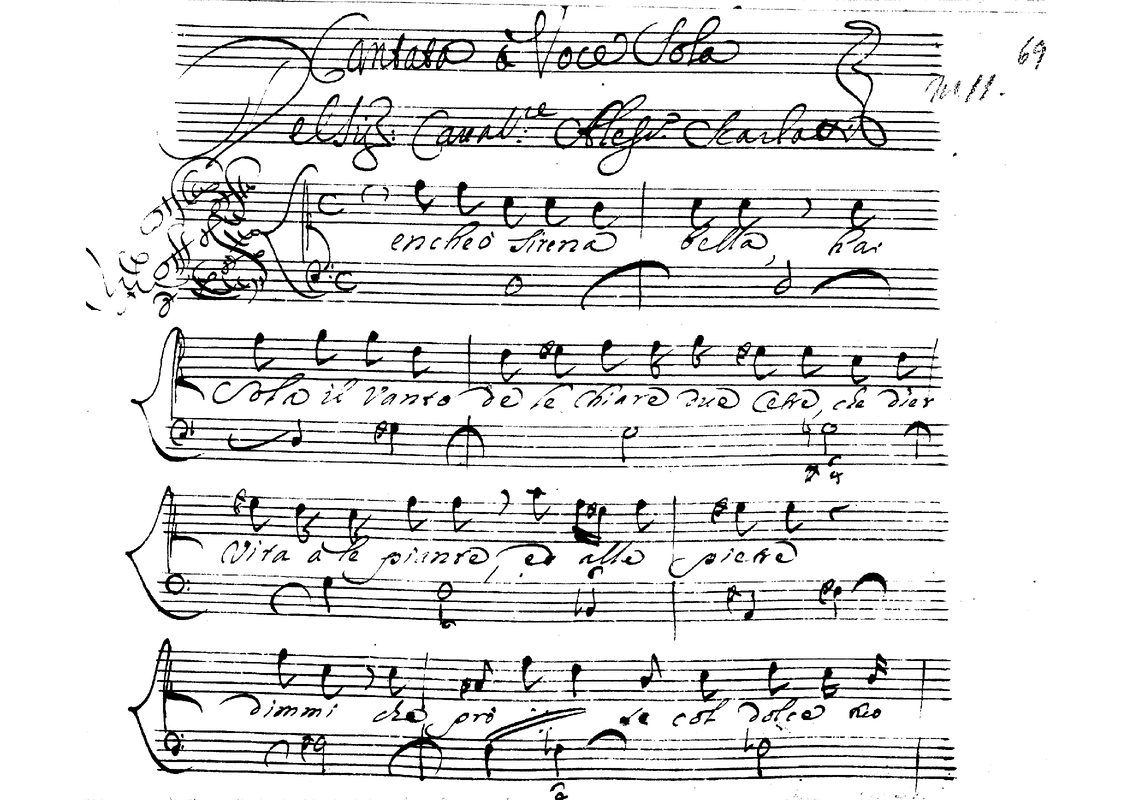 Cantata à Voce Sola
69
Del Sig.r Caval.re Aless.o Scarlatti
encheò Sirena bella, hai
Sola il Vanto de le chiare due Cetre, che dier
Vita à le piante, ed alle pietre
dimmi che prò se col dolce